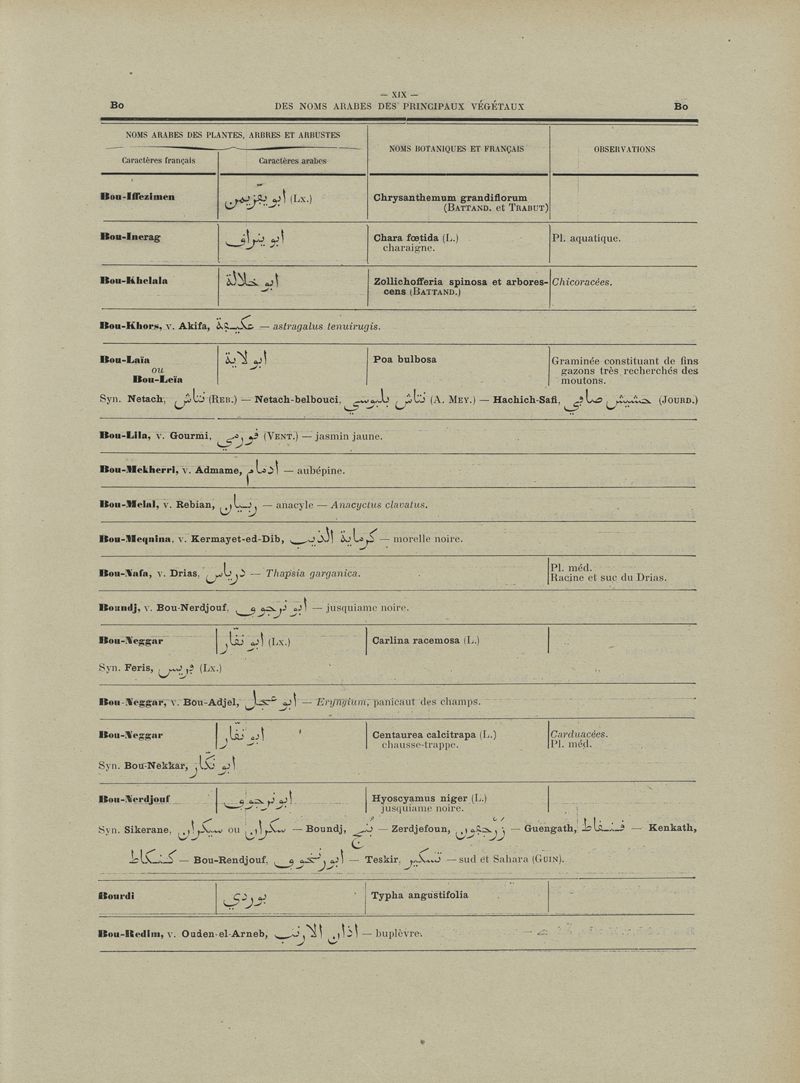 — XIX —
Bo DES NOMS ARABES DES PRINCIPAUX VÉGÉTAUX Bo
NOMS ARABES DES PLANTES, ARBRES ET ARBUSTES
NOMS BOTANIQUES ET FRANÇAIS
OBSERVATIONS
Caractères français Caractères arabes
Bou-Iffezimen (Lx.) Chrysanthemum grandiflorum
(BATTAND. et TRABUT)
Bou-Inerag Chara fœtida (L.) Pl. aquatique.
charaigne.
Bou-Khelala ابو خلالة Zollichofferia spinosa et arbores- Chicoracées.
cens (BATTAND.)
Bou-Khors, v. Akifa, عكيفة — astragalus tenuirugis.
Bou-Laïa ابو لاية Poa bulbosa Graminée constituant de fins
ou gazons très recherchés des
Bou-Leïa moutons.
Syn. Netach, نتاش (REB.) — Netach-belbouci, نتاش بلبوسي (A. MEY.) — Hachich-Safi, حشيش صافي (JOURD.)
Bou-Lila, v. Gourmi, (VENT.) — jasmin jaune.
Bou-Mekherri, v. Admame, ادمام — aubépine.
Bou-Melal, v. Rebian, ربيان — anacyle — Anacyclus clavatus.
Bou-Meqnina, v. Kermayet-ed-Dib, كرماية الذيب — morelle noire.
Bou-Nafa, v. Drias, درياس — Thapsia garganica. Pl. méd.
Racine et suc du Drias.
Boundj, v. Bou-Nerdjouf, ابو نرجوف — jusquiame noire.
Bou-Neggar ابو نقار (Lx.) Carlina racemosa (L.)
Syn. Feris, فريس (Lx.)
Bou-Neggar, v. Bou-Adjel, ابو عجل — Eryngium, panicaut des champs.
Bou-Neggar ابو نقار Centaurea calcitrapa (L.) Carduacées.
chausse-trappe. Pl. méd.
Syn. Bou-Nekkar, ابو نكار
Bou-Nerdjouf ابو نرجوف Hyoscyamus niger (L.)
jusquiame noire.
Syn. Sikerane, سكران ou سيكران — Boundj, بنج — Zerdjefoun, زرجفون — Guengath, فنقاط — Kenkath,
كنكاط — Bou-Rendjouf, ابو رنجوف — Teskir, تسكير — sud et Sahara (GUIN).
Bourdi بوردي Typha angustifolia
Bou-Redim, v. Ouden-el-Arneb, اذان الارنب — buplèvre.